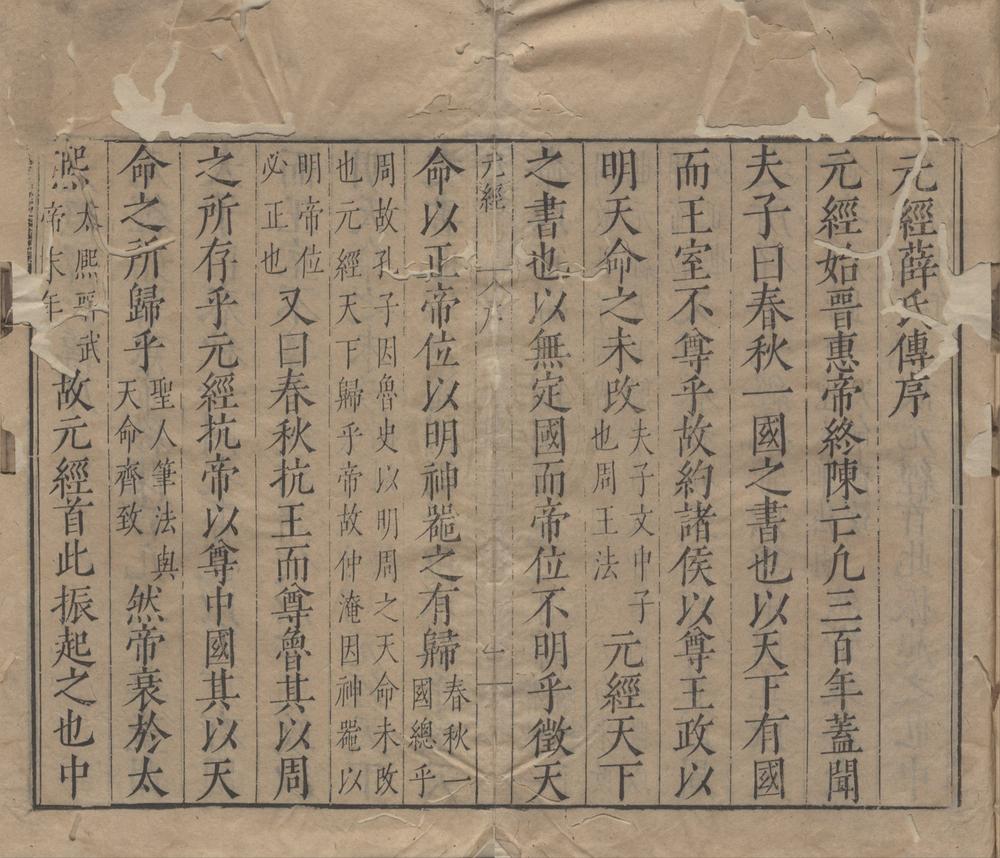 元經薛氏傳序
元經始晉惠帝終陳亡凢三百年蓋聞
夫子曰春秋一國之書也以天下有國
而王室不尊乎故約諸侯以尊王政以
明天命之未改夫子文中子也周王法元經天下
之書也以無定國而帝位不明乎徵天
元經 序 一
命以正帝位以明神噐之有歸春秋一國總乎
周故孔子因魯史以明周之天命未改
也元經天下歸乎帝故仲淹因神噐以
明帝位必正也又曰春秋抗王而尊魯其以周
之所存乎元經抗帝以尊中國其以天
命之所歸乎聖人筆法與天命齊致然帝衰於太
熙太熙晉武帝末年故元經首此振起之也中